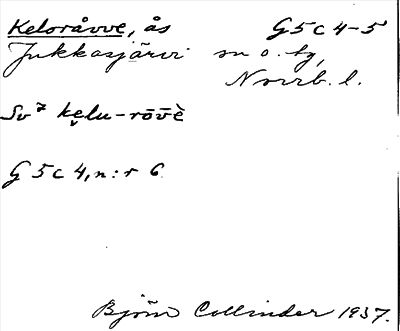 Keloråvve, ås G5c4-5
Jukkasjärvi sn o. tg,
Norrb. l.
ke̮lu-rōv̄è
G5c4, n:r 6
Björn Collinder 1937.